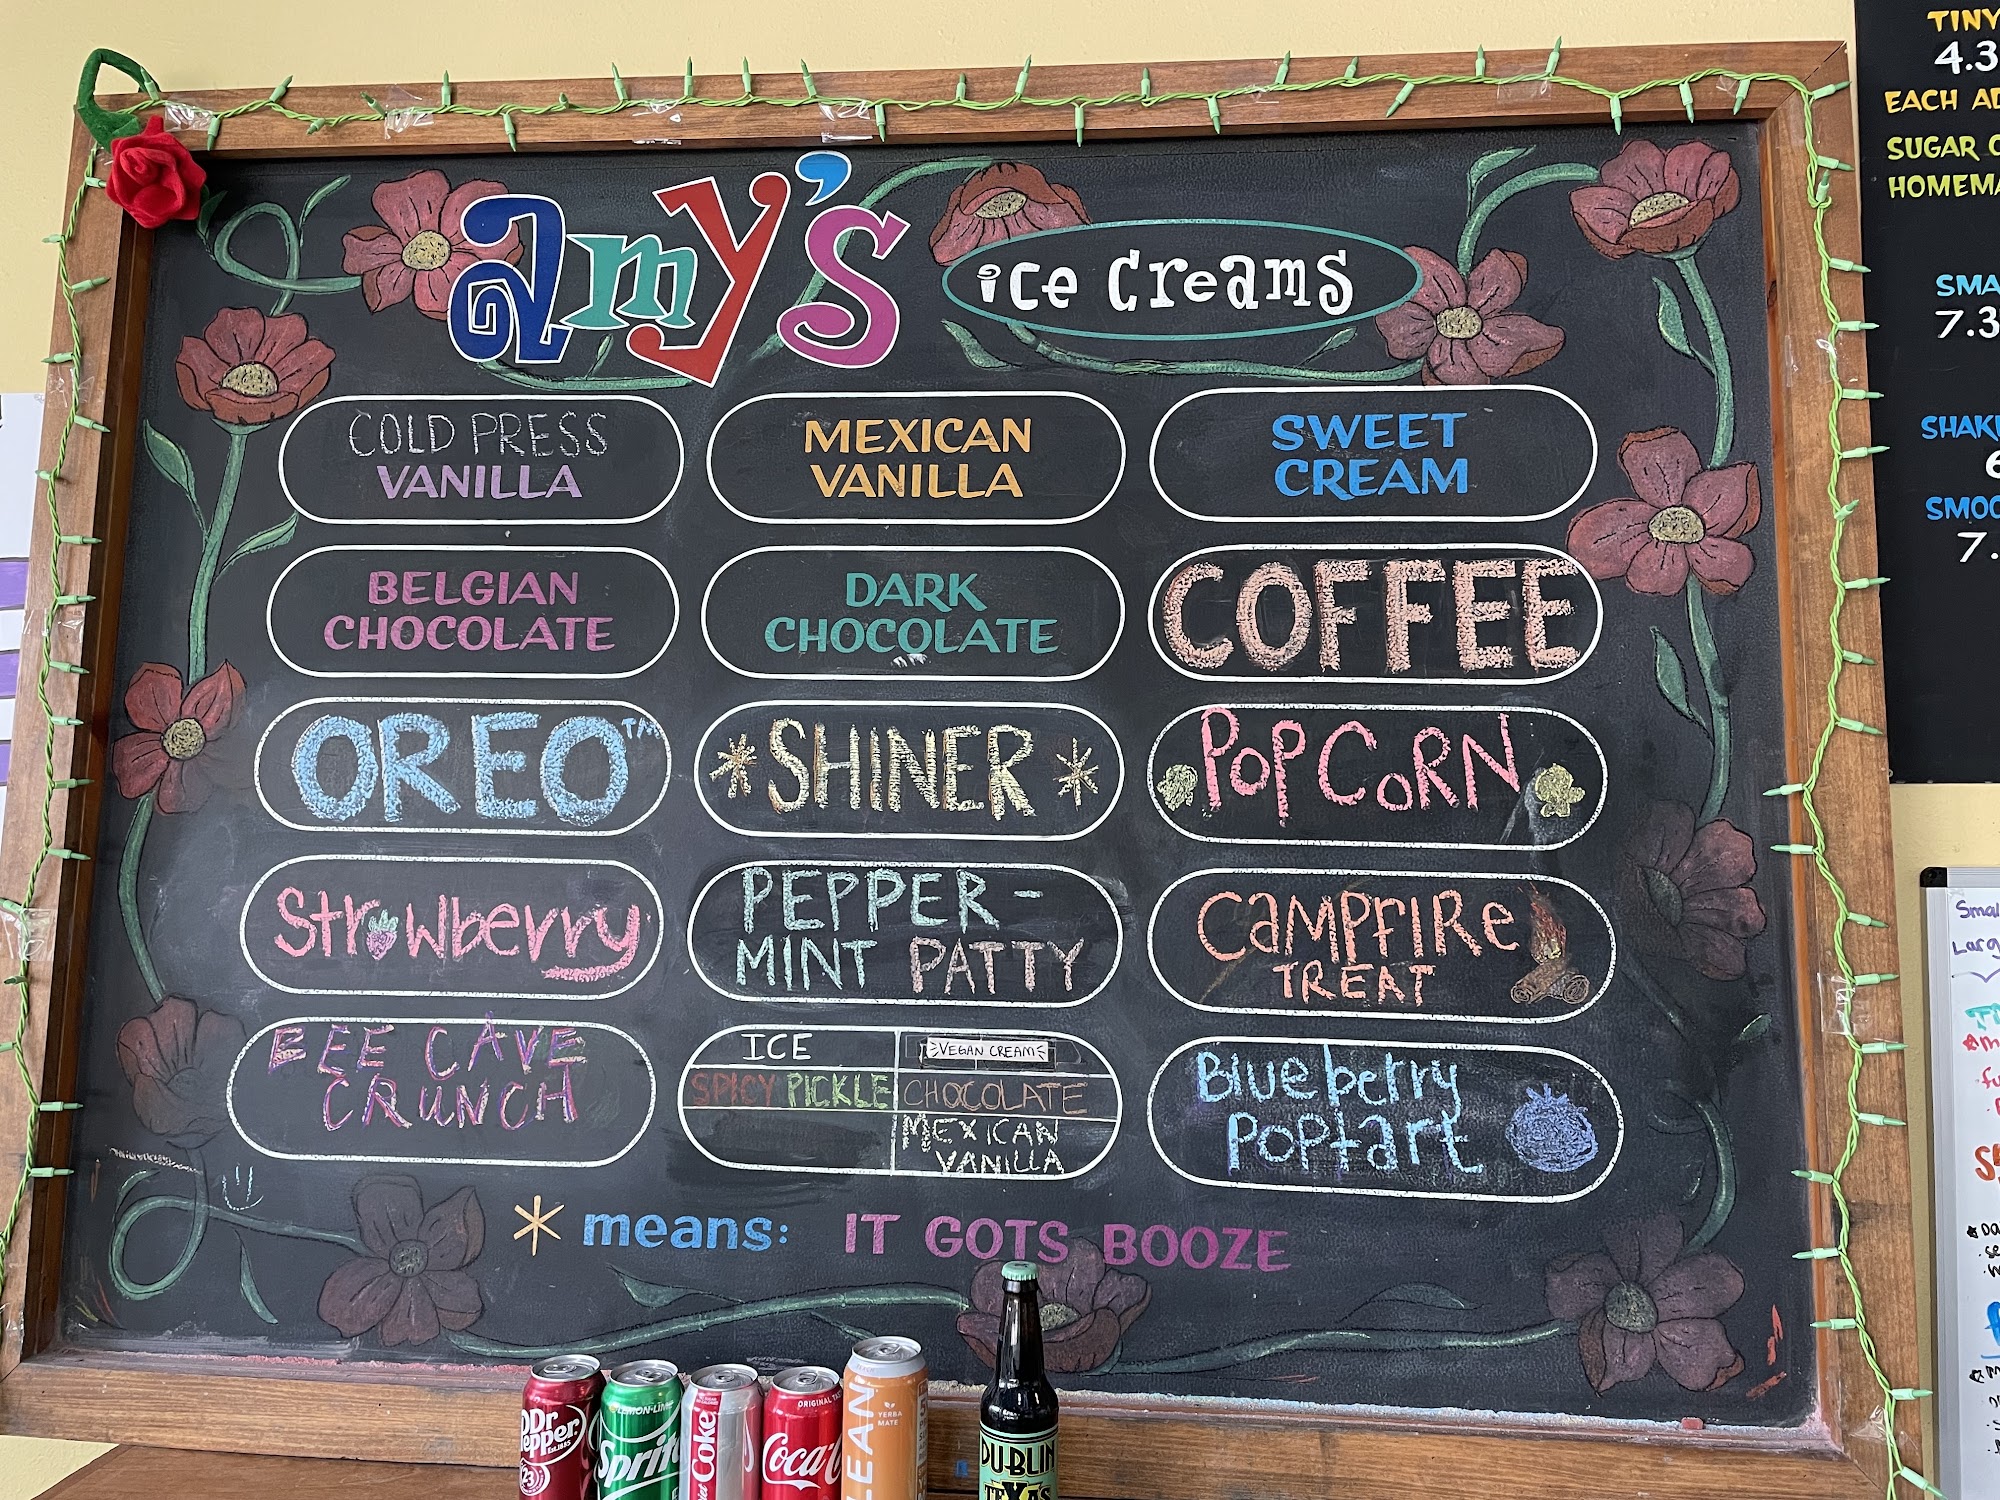 amy's ice creams
COLD PRESS
VANILLA
MEXICAN
VANILLA
SWEET
CREAM
BELGIAN
CHOCOLATE
DARK
CHOCOLATE
COFFEE
OREO™
*SHINER*
POPCORN
Strawberry
PEPPER-
MINT PATTY
CAMPFIRE
TREAT
BEE CAVE
CRUNCH
ICE
SPICY PICKLE
VEGAN CREAM
CHOCOLATE
MEXICAN
VANILLA
Blueberry
Poptart
* means: IT GOTS BOOZE
Dr
Pepper
23
LEMON-LIME
Sprite
Coke
ORIGINAL
Coca
YERBA
MATE
LEAN
DUBLIN
TEXAS
TINY
4.3
EACH AD
SUGAR C
HOMEMA
SMA
7.3
SHAK
6
SMOO
7.
Smal
Larg